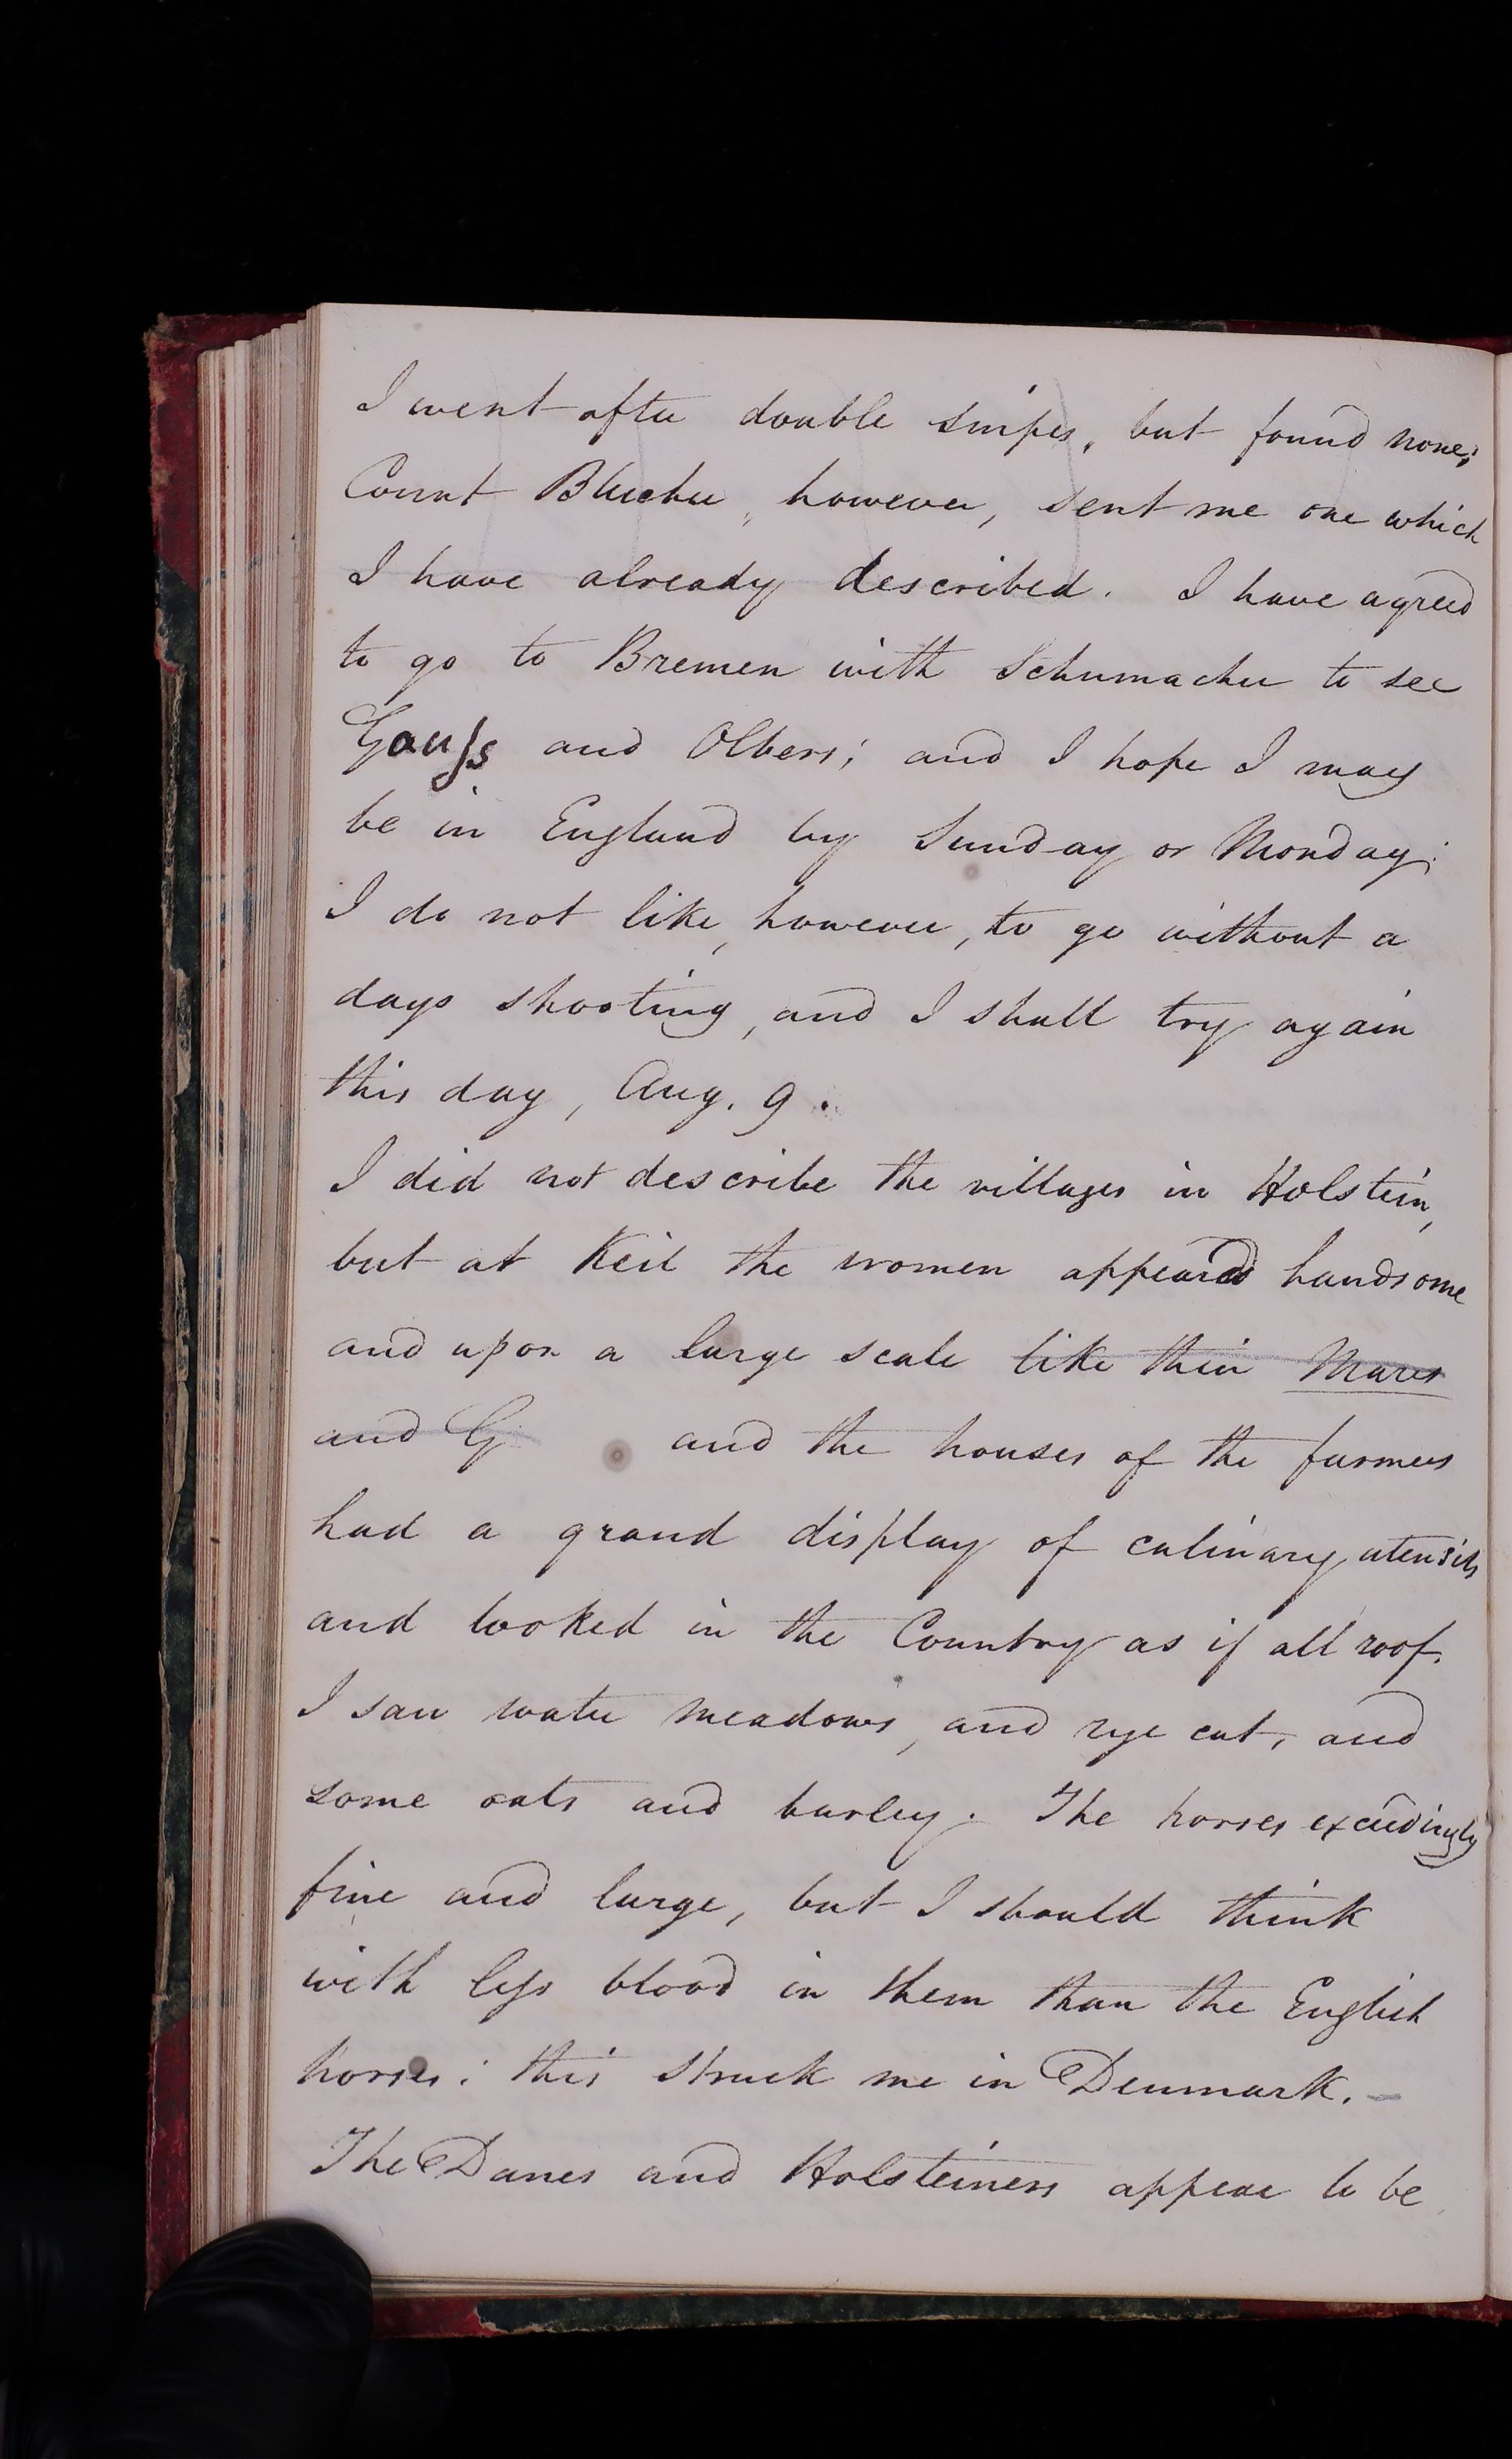 I went after double snipes, but found none;
Count Blucher, however, sent me one which
I have already described. I have agreed
to go to Bremen with Schumacher to see
Gauss and Olbers; and I hope I may
be in England by Sunday or Monday;
I do not like, however, to go without a
days shooting, and I shall try again
this day, Aug. 9.
I did not describe the villages in Holstein,
but at Keil the women appeared handsome
and upon a large scale like their Mares
and G and the houses of the farmers
had a grand display of culinary utensils
and looked in the Country as if all roof.
I saw water meadows, and rye cut, and
some oats and barley. The horses exceedingly
fine and large, but I should think
with less blood in them than the English
horses: this struck me in Denmark. –
The Danes and Holsteiners appear to be